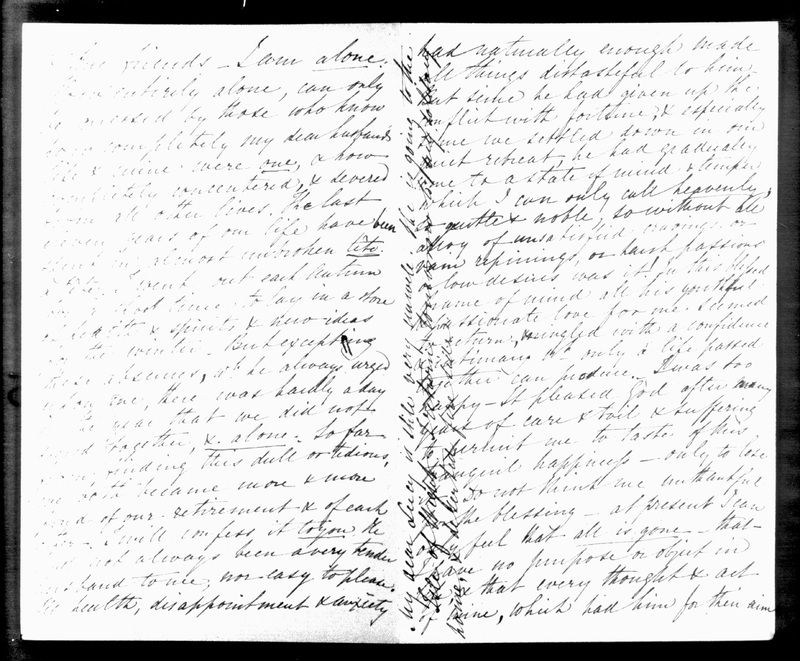 friends – I am alone.
entirely alone, can only
be guessed by those who know
how completely my dear husband's
life & mine were one, & how
completely concentered, & severed
from all other lives. The last
years of our life have been
spent in almost unbroken tête
à tête. I went out each autumn
for a short time, to lay in a store
of health & spirits & new ideas
for the winter. But excepting
these absences, wh he always urged
upon me, there was hardly a day
in the year that we did not
spend together, & alone. So far
from finding this dull or tedious,
we both became more & more
fond of our retirement & of each
other. I will confess it to you He
had not always been a very tender
husband to me, nor easy to please.
Ill health, disappointment & anxiety
had naturally enough made
all things distasteful to him
but since he had given up the
conflict with fortune, & especially
since we settled down in our
quiet retreat, he had gradually
come to a state of mind & temper
which I can only call heavenly,
so gentle & noble, so without all
alloy of unsatisfied cravings or
vain repinings, or harsh passions
or low desires was it! In this blessed
frame of mind all his youthful
passionate love for me seemed
to return, mingled with a confidence
& intimacy wh only a life passed
together can produce. I was too
happy – It pleased God after many
years of care & toil & suffering
to permit me to taste of this
tranquil happiness – only to lose
it. Do not think me unthankful
for the blessing – at present I can
only feel that all is gone – that
I have no purpose or object in
life & that every thought & act
of mine, which had him for their aim
My dear Lucy is still very unwell. She is going to the